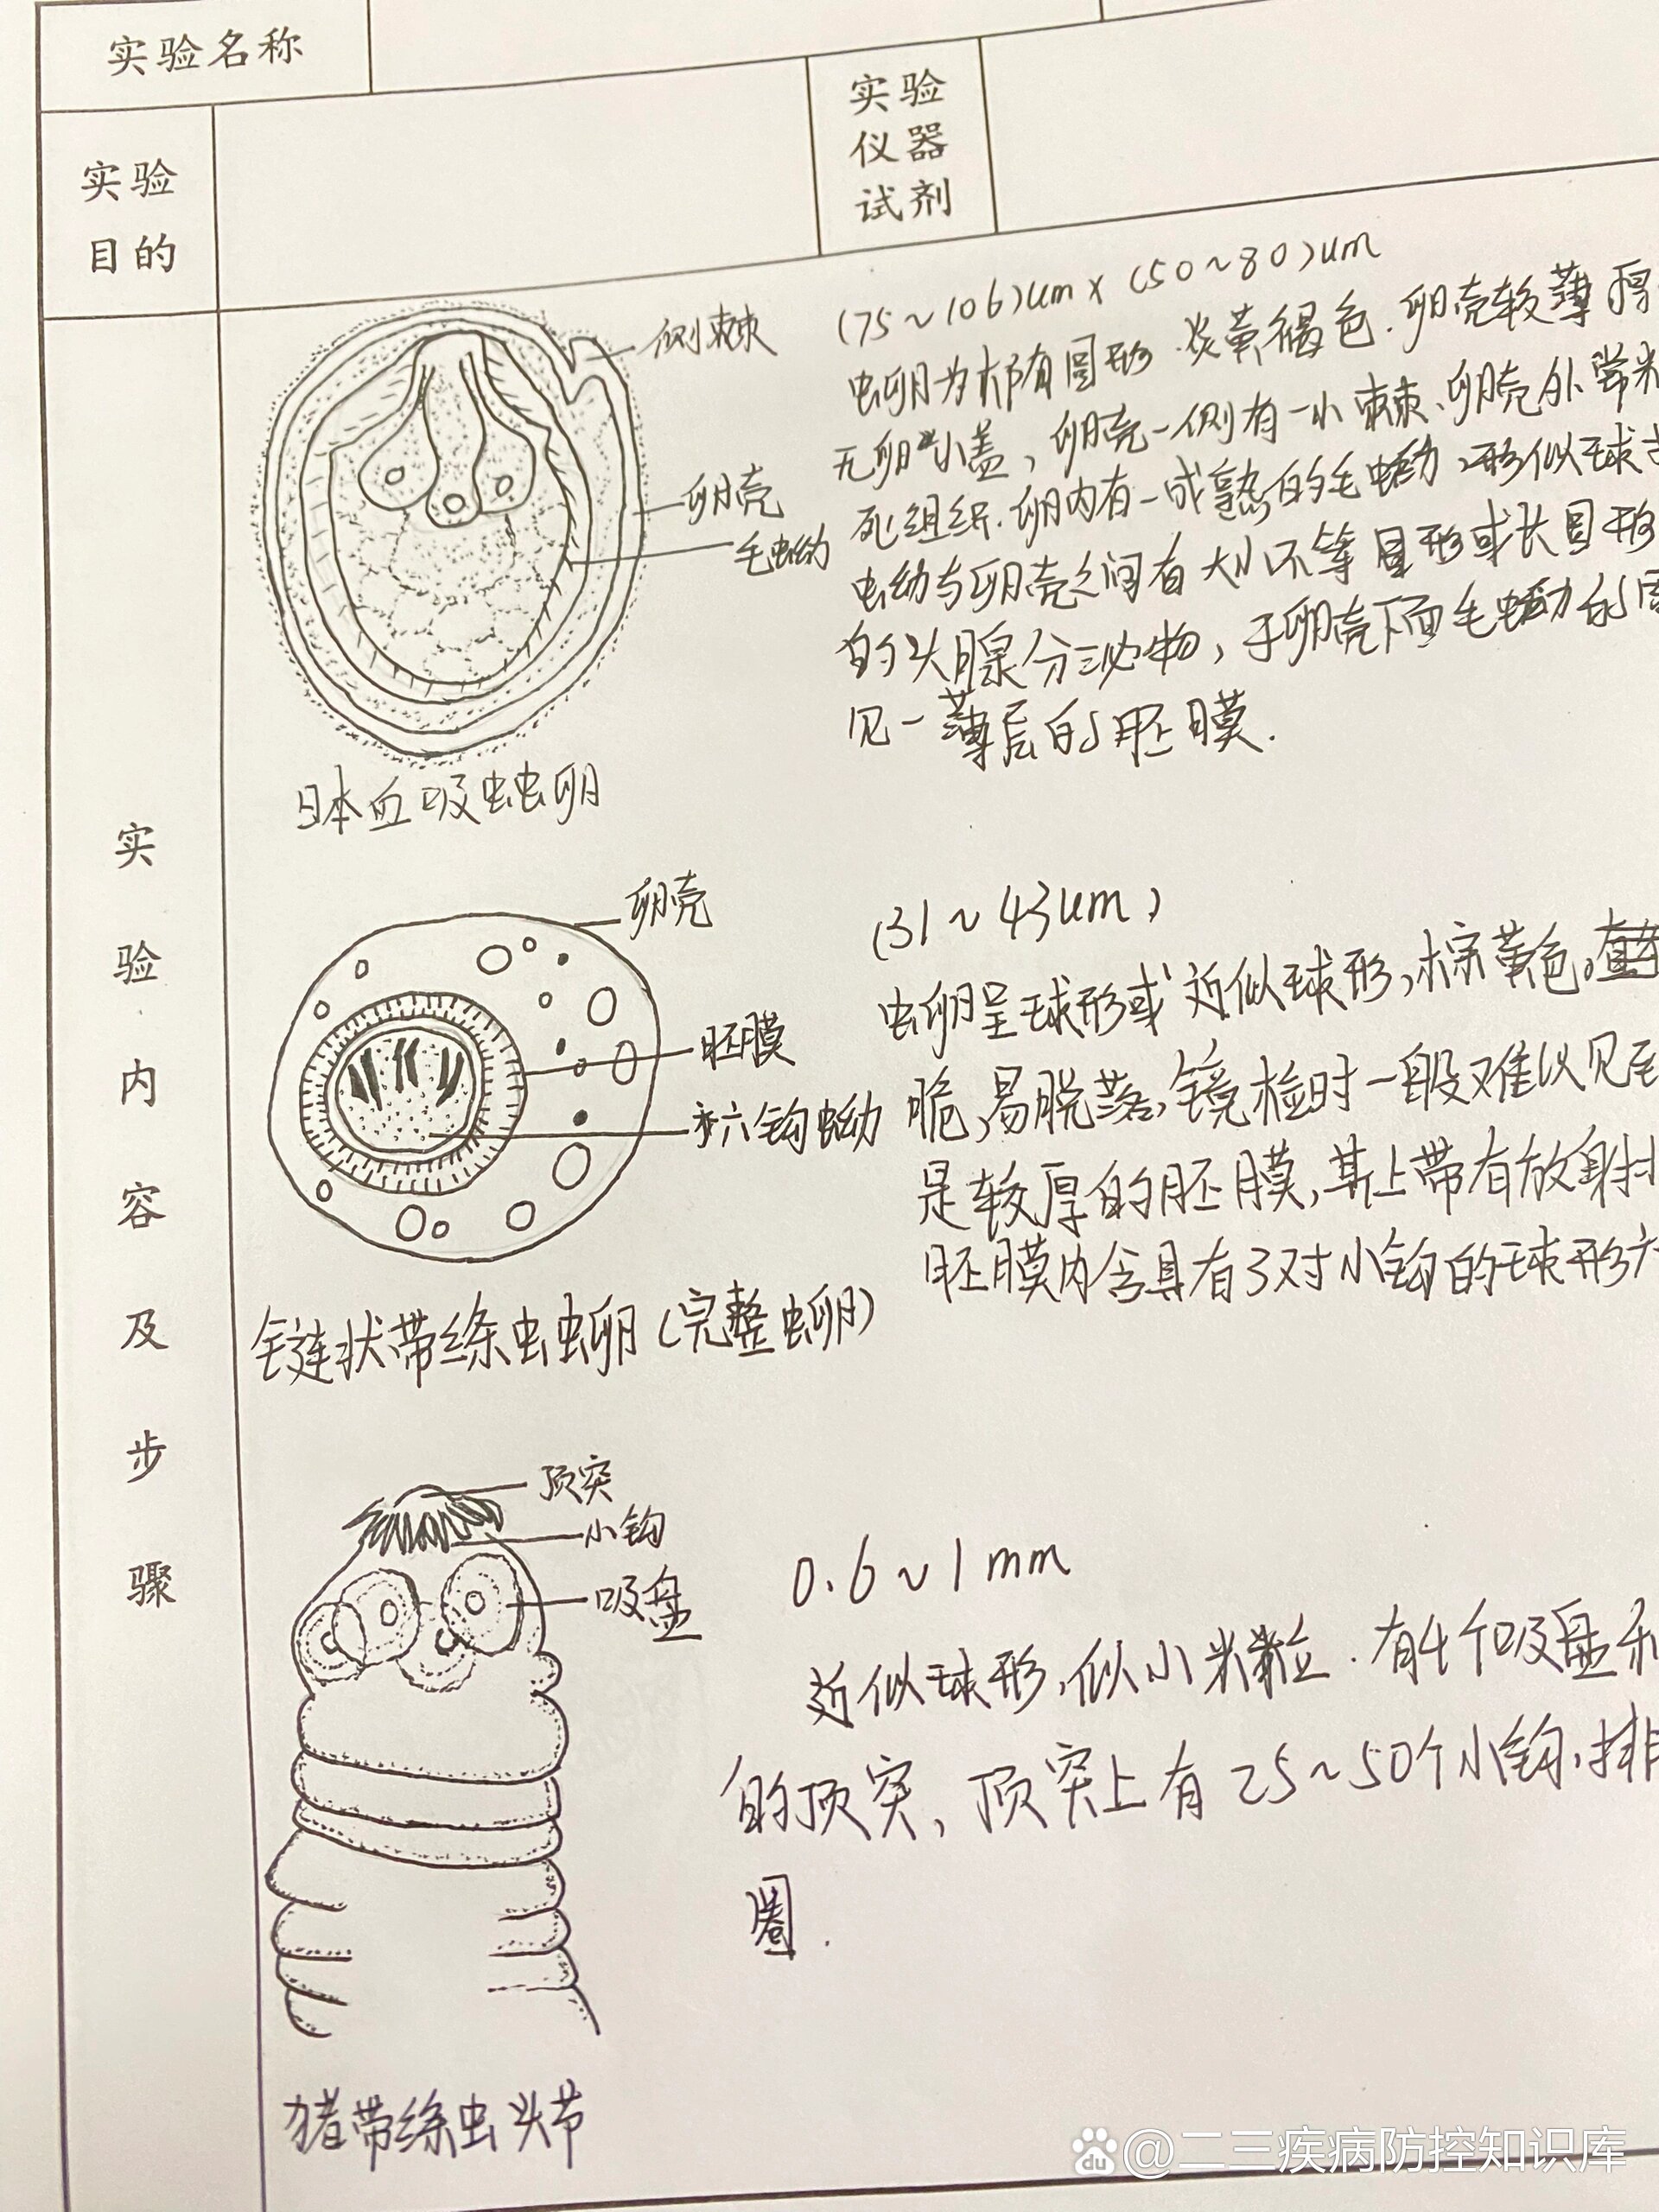 实验名称
实验
目的
实验
仪器
试剂
实验内容及步骤
(75~106)um×(50~80)um
侧棘
卵壳
毛蚴
日本血吸虫虫卵
虫卵为椭圆形.淡黄褐色.卵壳较薄
无卵小盖,卵壳一侧有一小棘、卵壳外常
死组织.卵内有一成熟的毛蚴,形似球
蚴与卵壳之间有大小不等圆形或长圆形
的头腺分泌物,于卵壳下面毛蚴的周
见一薄层的胚膜.
卵壳
胚膜
六钩蚴
链状带绦虫虫卵(完整虫卵)
(31~43um)
虫卵呈球形或近似球形,棕黄色。
脆,易脱落,镜检时一般难以见到
是较厚的胚膜,其上带有放射
胚膜内含具有3对小钩的球形六
顶突
小钩
吸盘
猪带绦虫头节
0.6~1mm
近似球形,似小米粒.有4个吸盘和
的顶突,顶突上有25~50个小钩,排
圈.
du @二三疾病防控知识库